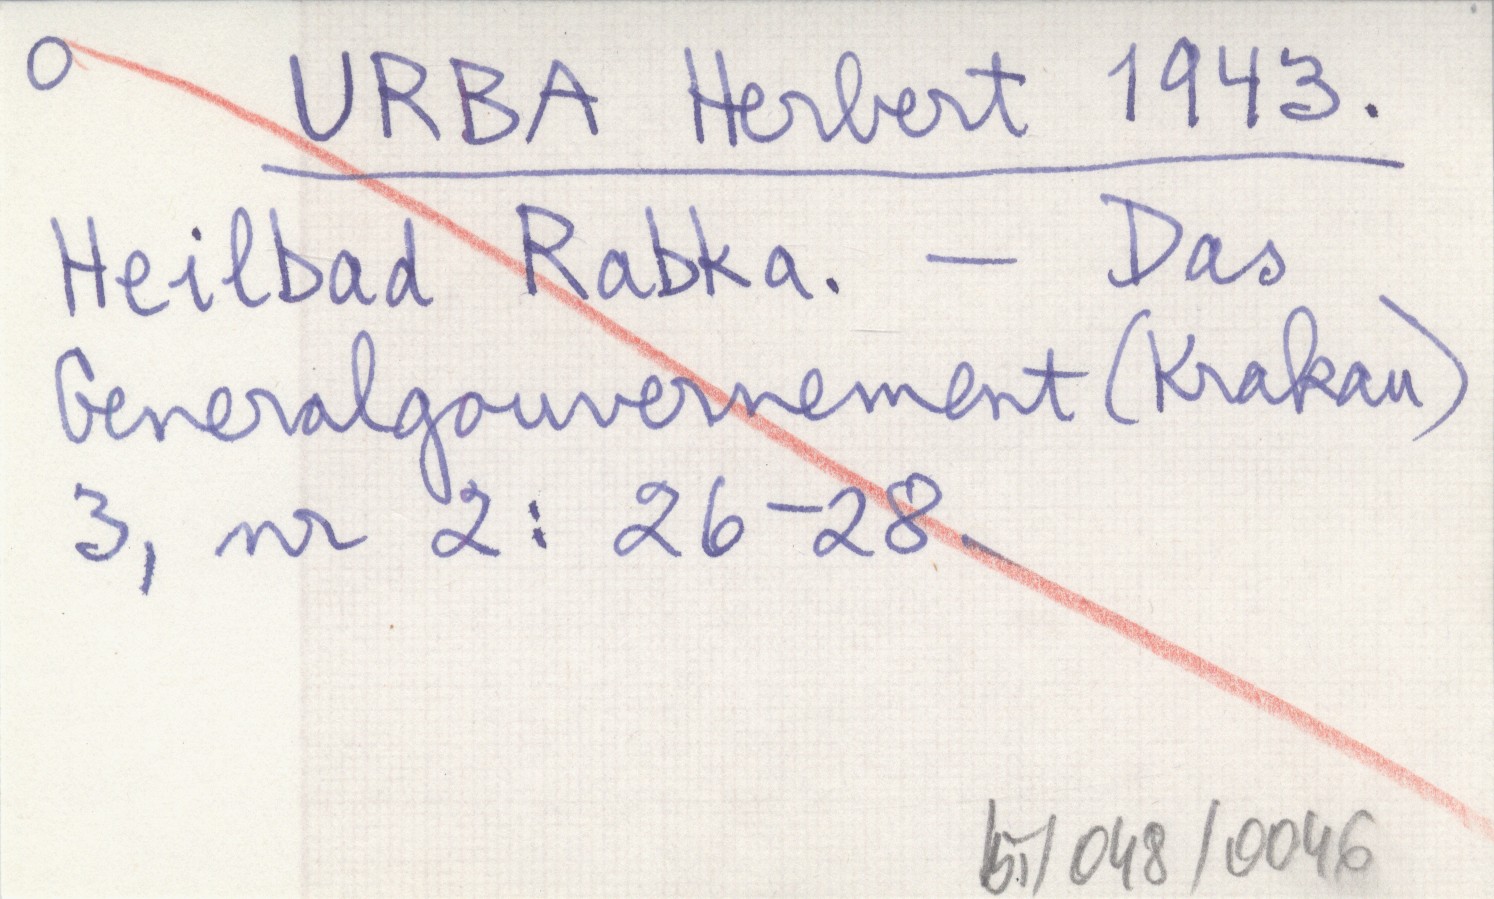 O URBA Herbert 1943.
Heilbad Rabka. — Das
Generalgouvernement (Krakau)
3, nr 2: 26-28.
b5/048/0046